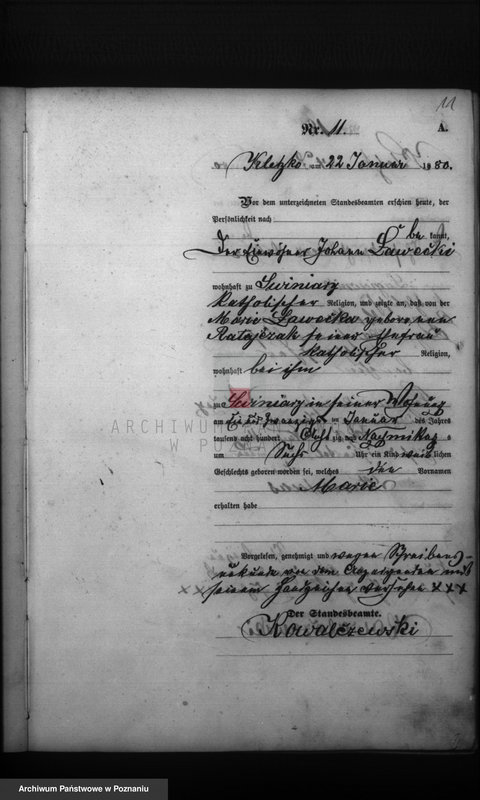 11
Nr. 11.
A.
Kletzko am 22 Januar 1880.
Vor dem unterzeichneten Standesbeamten erschien heute, der
Persönlichkeit nach
be kannt,
Der Einwohner Johann Ławecki
wohnhaft zu Swiniary
katholischer Religion, und zeigte an, daß von der
Marie Ławecka geborenen
Ratajczak seiner Ehefrau
katholischer Religion,
wohnhaft bei ihm
zu Swiniary in seiner Wohnung
am ein und zwanzigsten Januar des Jahres
tausend acht hundert Acht zig Nachmittags
um Sechs Uhr ein Kind weib lichen
Geschlechts geboren worden sei, welches den Vornamen
Marie
erhalten habe
Vorgelesen, genehmigt und wegen Schreibens-
unkunde von dem Anzeigenden mit
seinem Handzeichen versehen xxx
Der Standesbeamte.
Kowalczewski
ARCHIWUM
W P
Archiwum Państwowe w Poznaniu